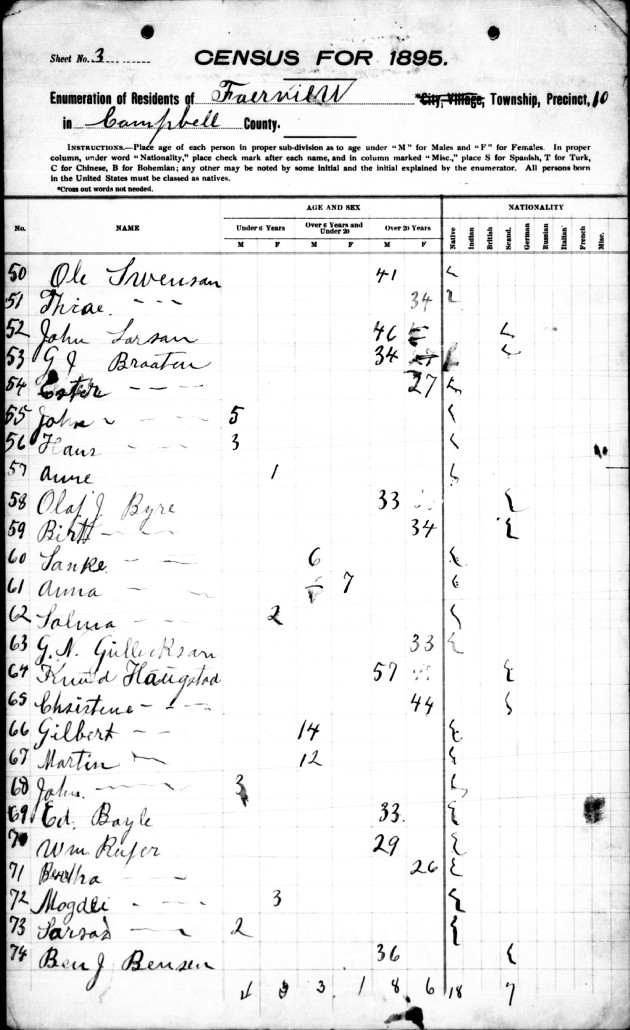 Sheet No. 3
CENSUS FOR 1895.
Enumeration of Residents of Faerview *City, Village, Township, Precinct, 10
in Campbell County.
INSTRUCTIONS.—Place age of each person in proper sub-division as to age under "M" for Males and "F" for Females. In proper
column, under word "Nationality," place check mark after each name, and in column marked "Misc.," place S for Spanish, T for Turk,
C for Chinese, B for Bohemian; any other may be noted by some initial and the initial explained by the enumerator. All persons born
in the United States must be classed as natives.
*Cross out words not needed.
AGE AND SEX NATIONALITY
No. NAME Under 6 Years Over 6 Years and Under 20 Over 20 Years Native Indian British Scand. German Russian Italian French Misc.
M F M F M F
50 Ole Swenson 41
51 34
52 John Larson 46
53 G J Braaten 34
54 Ester 27
55 John 5
56 Hans 3
57 Anne 1
58 Olaf J Byre 33
59 34
60 6
61 Anna 7
62 Salma 2
63 G. N. Gulleckson 33
64 Knud Haugstad 57
65 Christene 44
66 Gilbert 14
67 Martin 12
68 John 3
69 Ed. Boyle 33
70 Wm Rufer 29
71 Bertha 26
72 3
73 2
74 Ben J Bensen 36
4 3 3 1 8 6 18 7